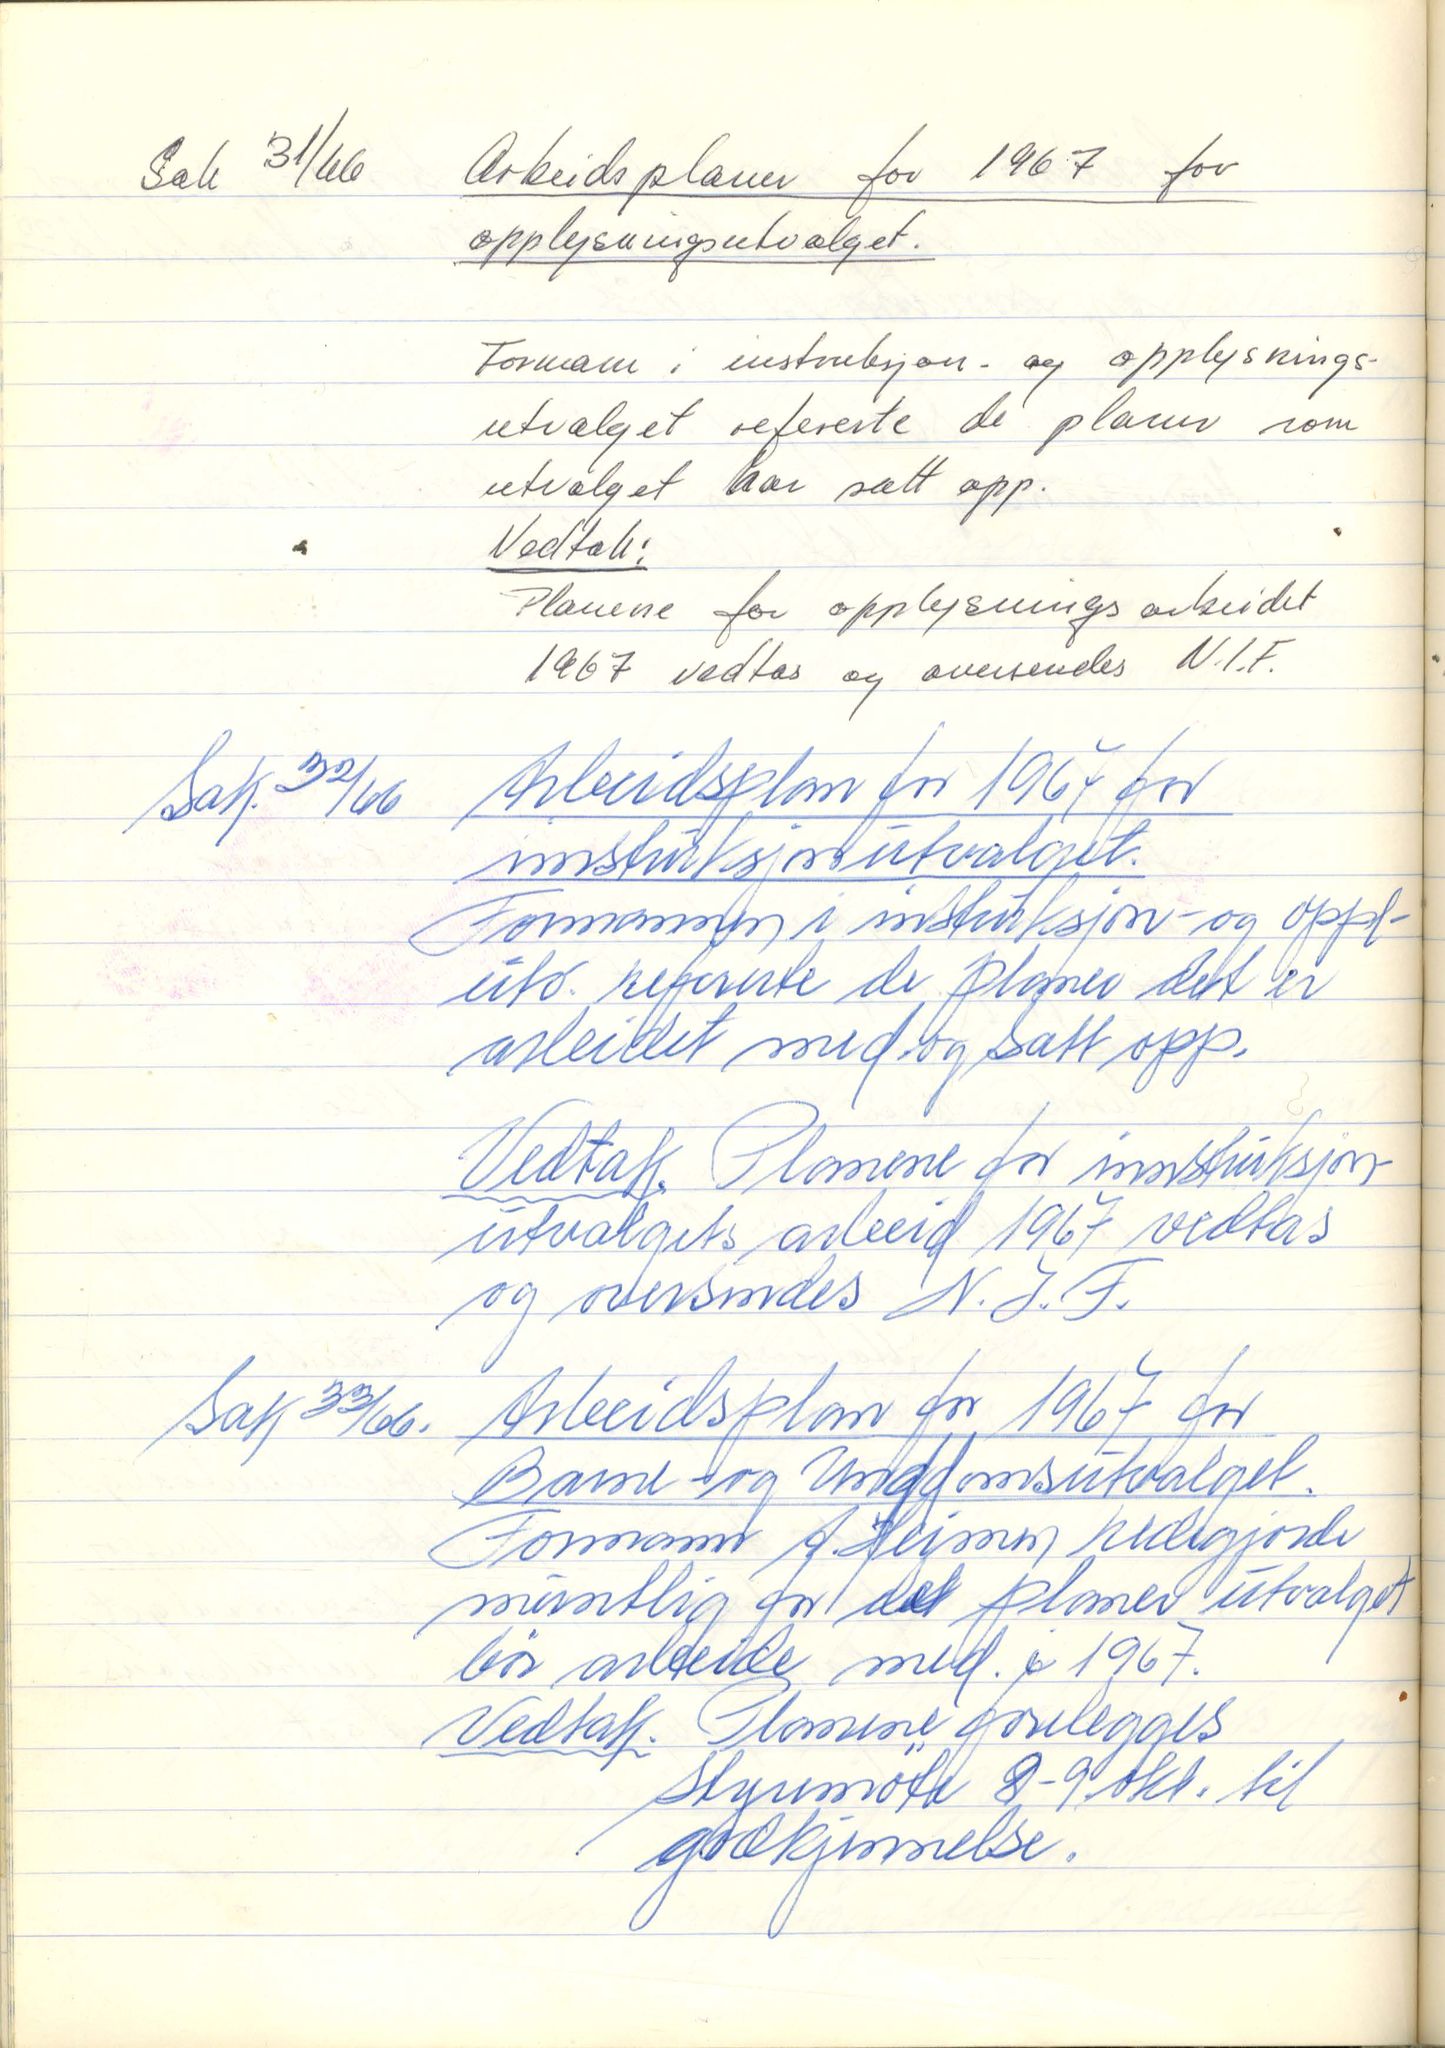 Sak 31/66 Arbeidsplaner for 1967 for
opplysningsutvalget.
Formann i instruksjon- og opplysnings-
utvalget refererte de planer som
utvalget har satt opp.
Vedtak:
Planene for opplysningsarbeidet
1967 vedtas og oversendes N.I.F.
Sak. 32/66 Arbeidsplan for 1967 for
instruksjonsutvalget.
Formannen i instruksjon- og oppl-
utv. refererte de planer det er
arbeidet med og satt opp.
Vedtak. Planene for instruksjon
utvalgets arbeid 1967 vedtas
og oversendes N.I.F.
Sak 33/66. Arbeidsplan for 1967 for
Barne- og Ungdomsutvalget.
Formann redegjorde
muntlig for det planer utvalget
bør arbeide med i 1967.
Vedtak. Planene forelegges
styremøte 8-9 okt. til
godkjennelse.